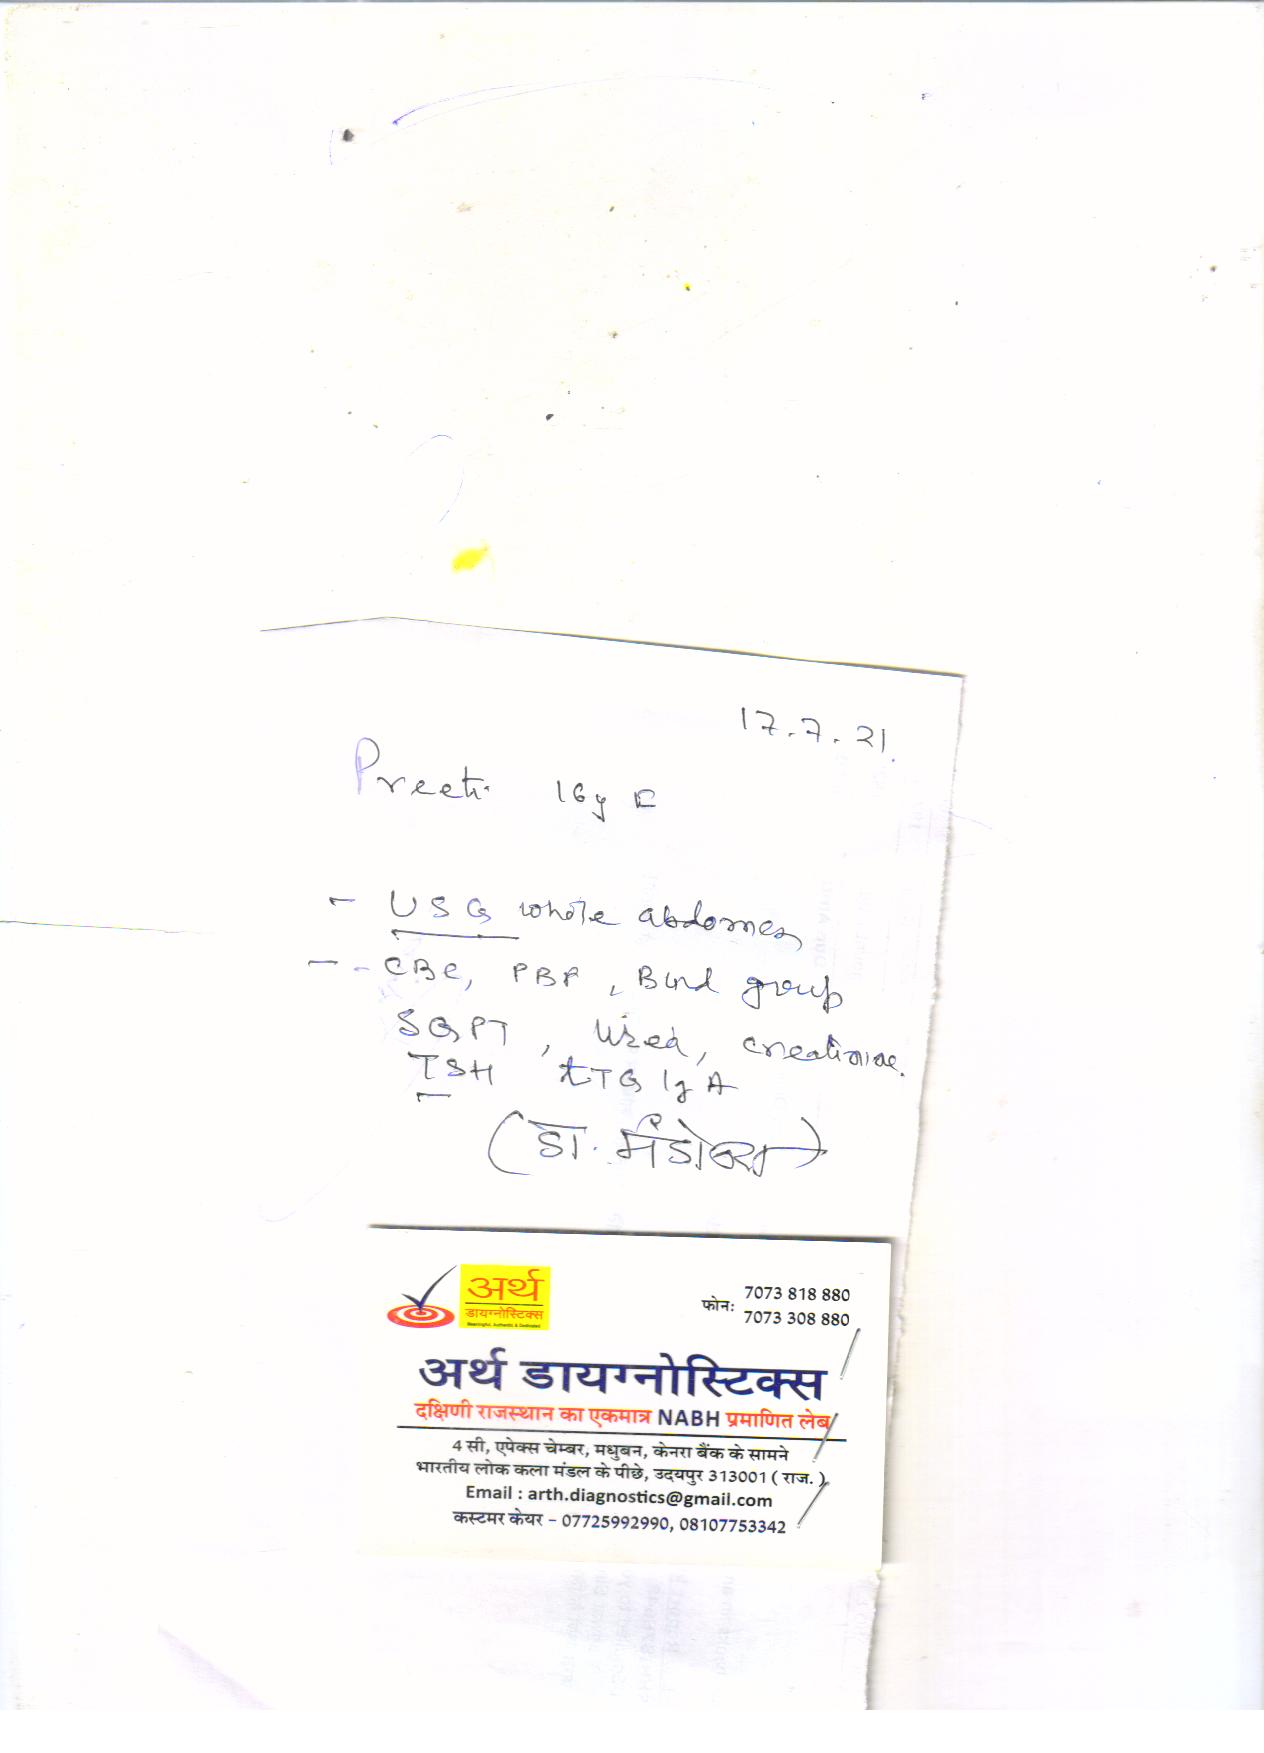 17.7.21.
Preeti 16y F
- USG whole abdomen
- - CBC, PBF, Blood group
SGPT, Urea, creatinine.
TSH tTG IgA
(डा.
अर्थ
डायग्नोस्टिक्स
Meaningful, Authentic & Dedicated
फोन: 7073 818 880
7073 308 880
अर्थ डायग्नोस्टिक्स
दक्षिणी राजस्थान का एकमात्र NABH प्रमाणित लेब
4 सी, एपेक्स चेम्बर, मधुबन, केनरा बैंक के सामने
भारतीय लोक कला मंडल के पीछे, उदयपुर 313001 ( राज. )
Email : arth.diagnostics@gmail.com
कस्टमर केयर – 07725992990, 08107753342